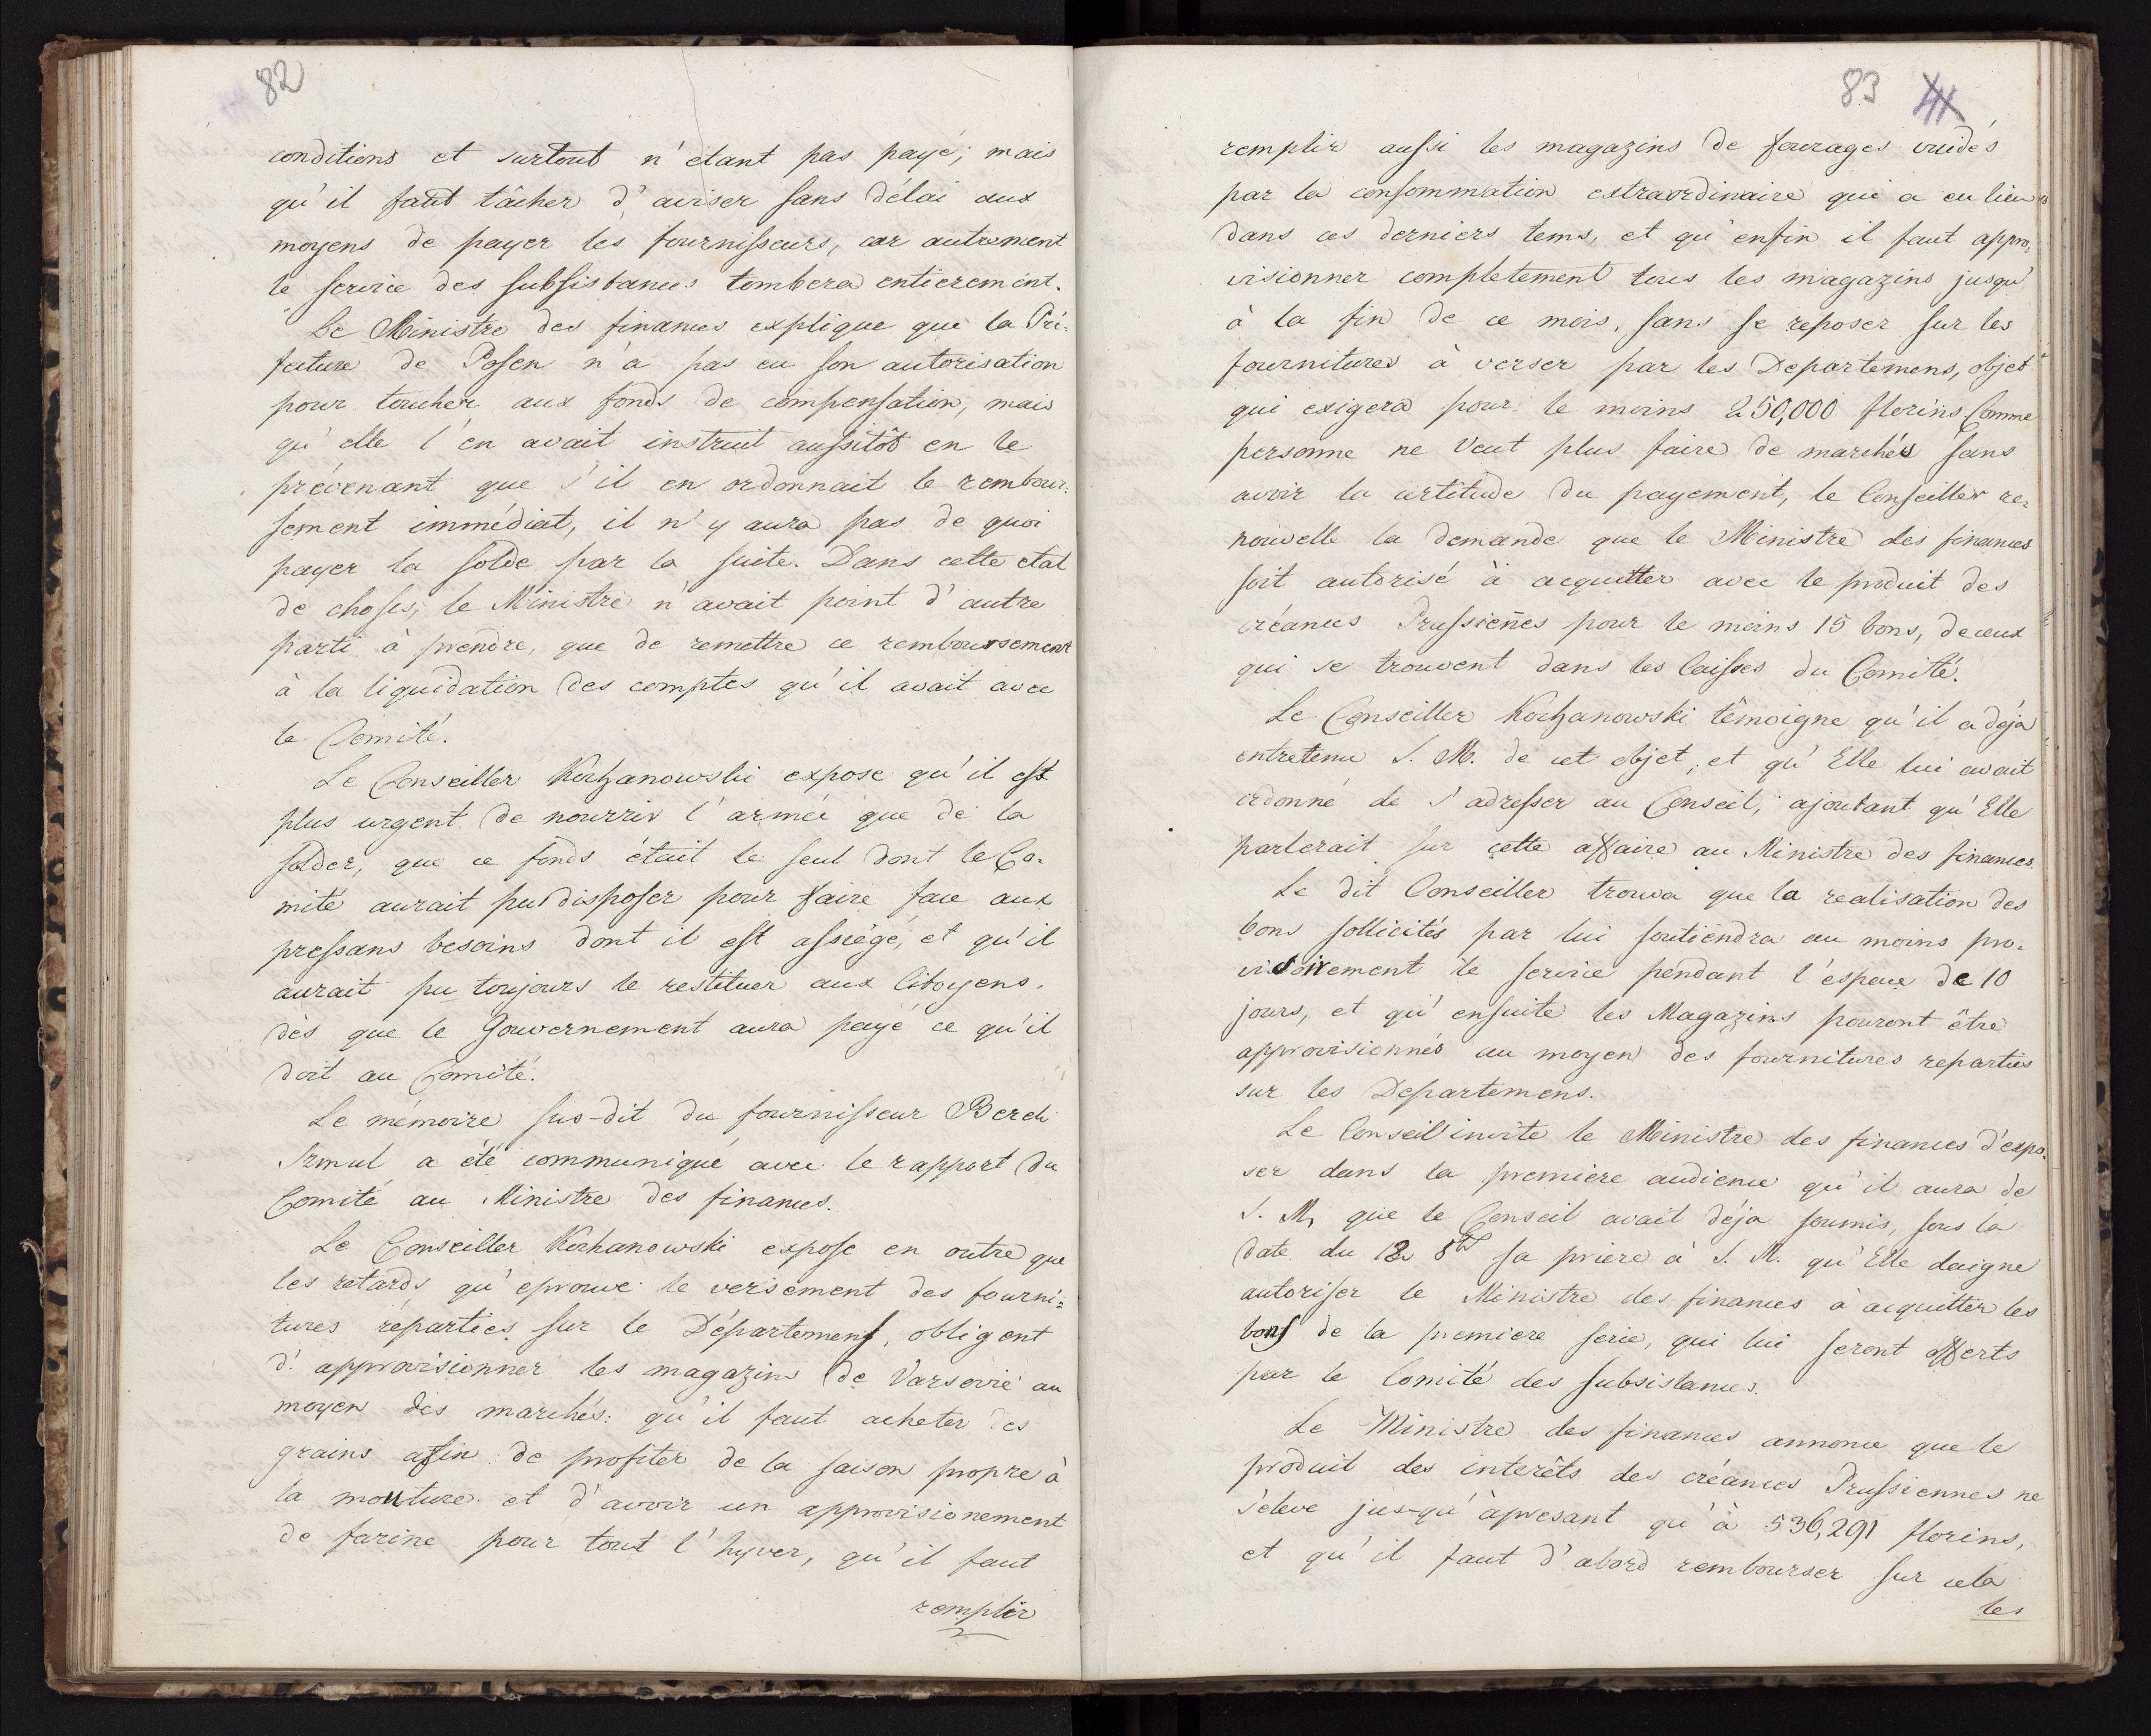 82
conditions et surtout n'étant pas payé; mais
qu'il faut tâcher d'aviser sans délai aux
moyens de payer les fournisseurs, car autrement
le service des subsistances tombera entierement.
Le Ministre des finances explique que la Pré-
fecture de Posen n'a pas eu son autorisation
pour toucher aux fonds de compensation, mais
qu'elle l'en avait instruit aussitôt en le
prévenant que s'il en ordonnait le rembour-
sement immédiat, il n'y aura pas de quoi
payer la solde par la suite. Dans cette état
de choses, le Ministre n'avait point d'autre
parti à prendre, que de remettre ce remboursement
à la liquidation des comptes qu'il avait avec
le Comité.
Le Conseiller Kochanowski expose qu'il est
plus urgent de nourrir l'armée que de la
solder, que ce fonds était le seul dont le Co-
mité aurait pu disposer pour faire face aux
pressans besoins dont il est assiégé, et qu'il
aurait pu toujours le restituer aux Citoyens,
dès que le Gouvernement aura payé ce qu'il
doit au Comité.
Le mémoire sus-dit du fournisseur Berek
Szmul a été communiqué avec le rapport du
Comité au Ministre des finances.
Le Conseiller Kochanowski expose en outre que
les retards qu'eprouve le versement des fourni-
tures réparties sur le Départemens, obligent
d'approvisionner les magazins de Varsovie au
moyen des marchés: qu'il faut acheter des
grains afin de profiter de la saison propre à
la mouture et d'avoir un approvisionement
de farine pour tout l'hyver, qu'il faut
remplir
83
remplir aussi les magazins de fourages vuidés
par la consommation extraordinaire qui a eu lieu
dans ces derniers tems, et qu'enfin il faut appro-
visionner completement tous les magazins jusqu'
à la fin de ce mois, sans se reposer sur les
fournitures à verser par les Departemens, objet
qui exigera pour le moins 250,000 florins. Comme
personne ne veut plus faire de marchés sans
avoir la certitude du payement, le Conseiller re-
nouvelle la demande que le Ministre des finances
soit autorisé à acquitter avec le produit des
créances Prussienes pour le moins 15 bons, de ceux
qui se trouvent dans les Caisses du Comité.
Le Conseiller Kochanowski têmoigne qu'il a déja
entretenu S. M. de cet objet, et qu'Elle lui avait
ordonné de s'adresser au Conseil, ajoutant qu'Elle
parlerait sur cette affaire au Ministre des finances.
Le dit Conseiller trouva que la realisation des
bons sollicités par lui soutiendra au moins pro-
visoirement le service pendant l'espace de 10
jours, et qu'ensuite les Magazins pouront être
approvisionnés au moyen des fournitures reparties
sur les Departemens.
Le Conseil invite le Ministre des finances d'expo-
ser dans la premiere audience qu'il aura de
S. M. que le Conseil avait déja soumis, sous la
date du 8bre sa priere à S. M. qu'Elle daigne
autoriser le Ministre des finances à acquitter les
bons de la premiere serie, qui lui seront offerts
par le Comité des subsistances.
Le Ministre des finances annonce que le
produit des interêts des créances Prussiennes ne
s'eleve jus-qu'àpresant qu'à 536,291 florins,
et qu'il faut d'abord rembourser sur cela
les